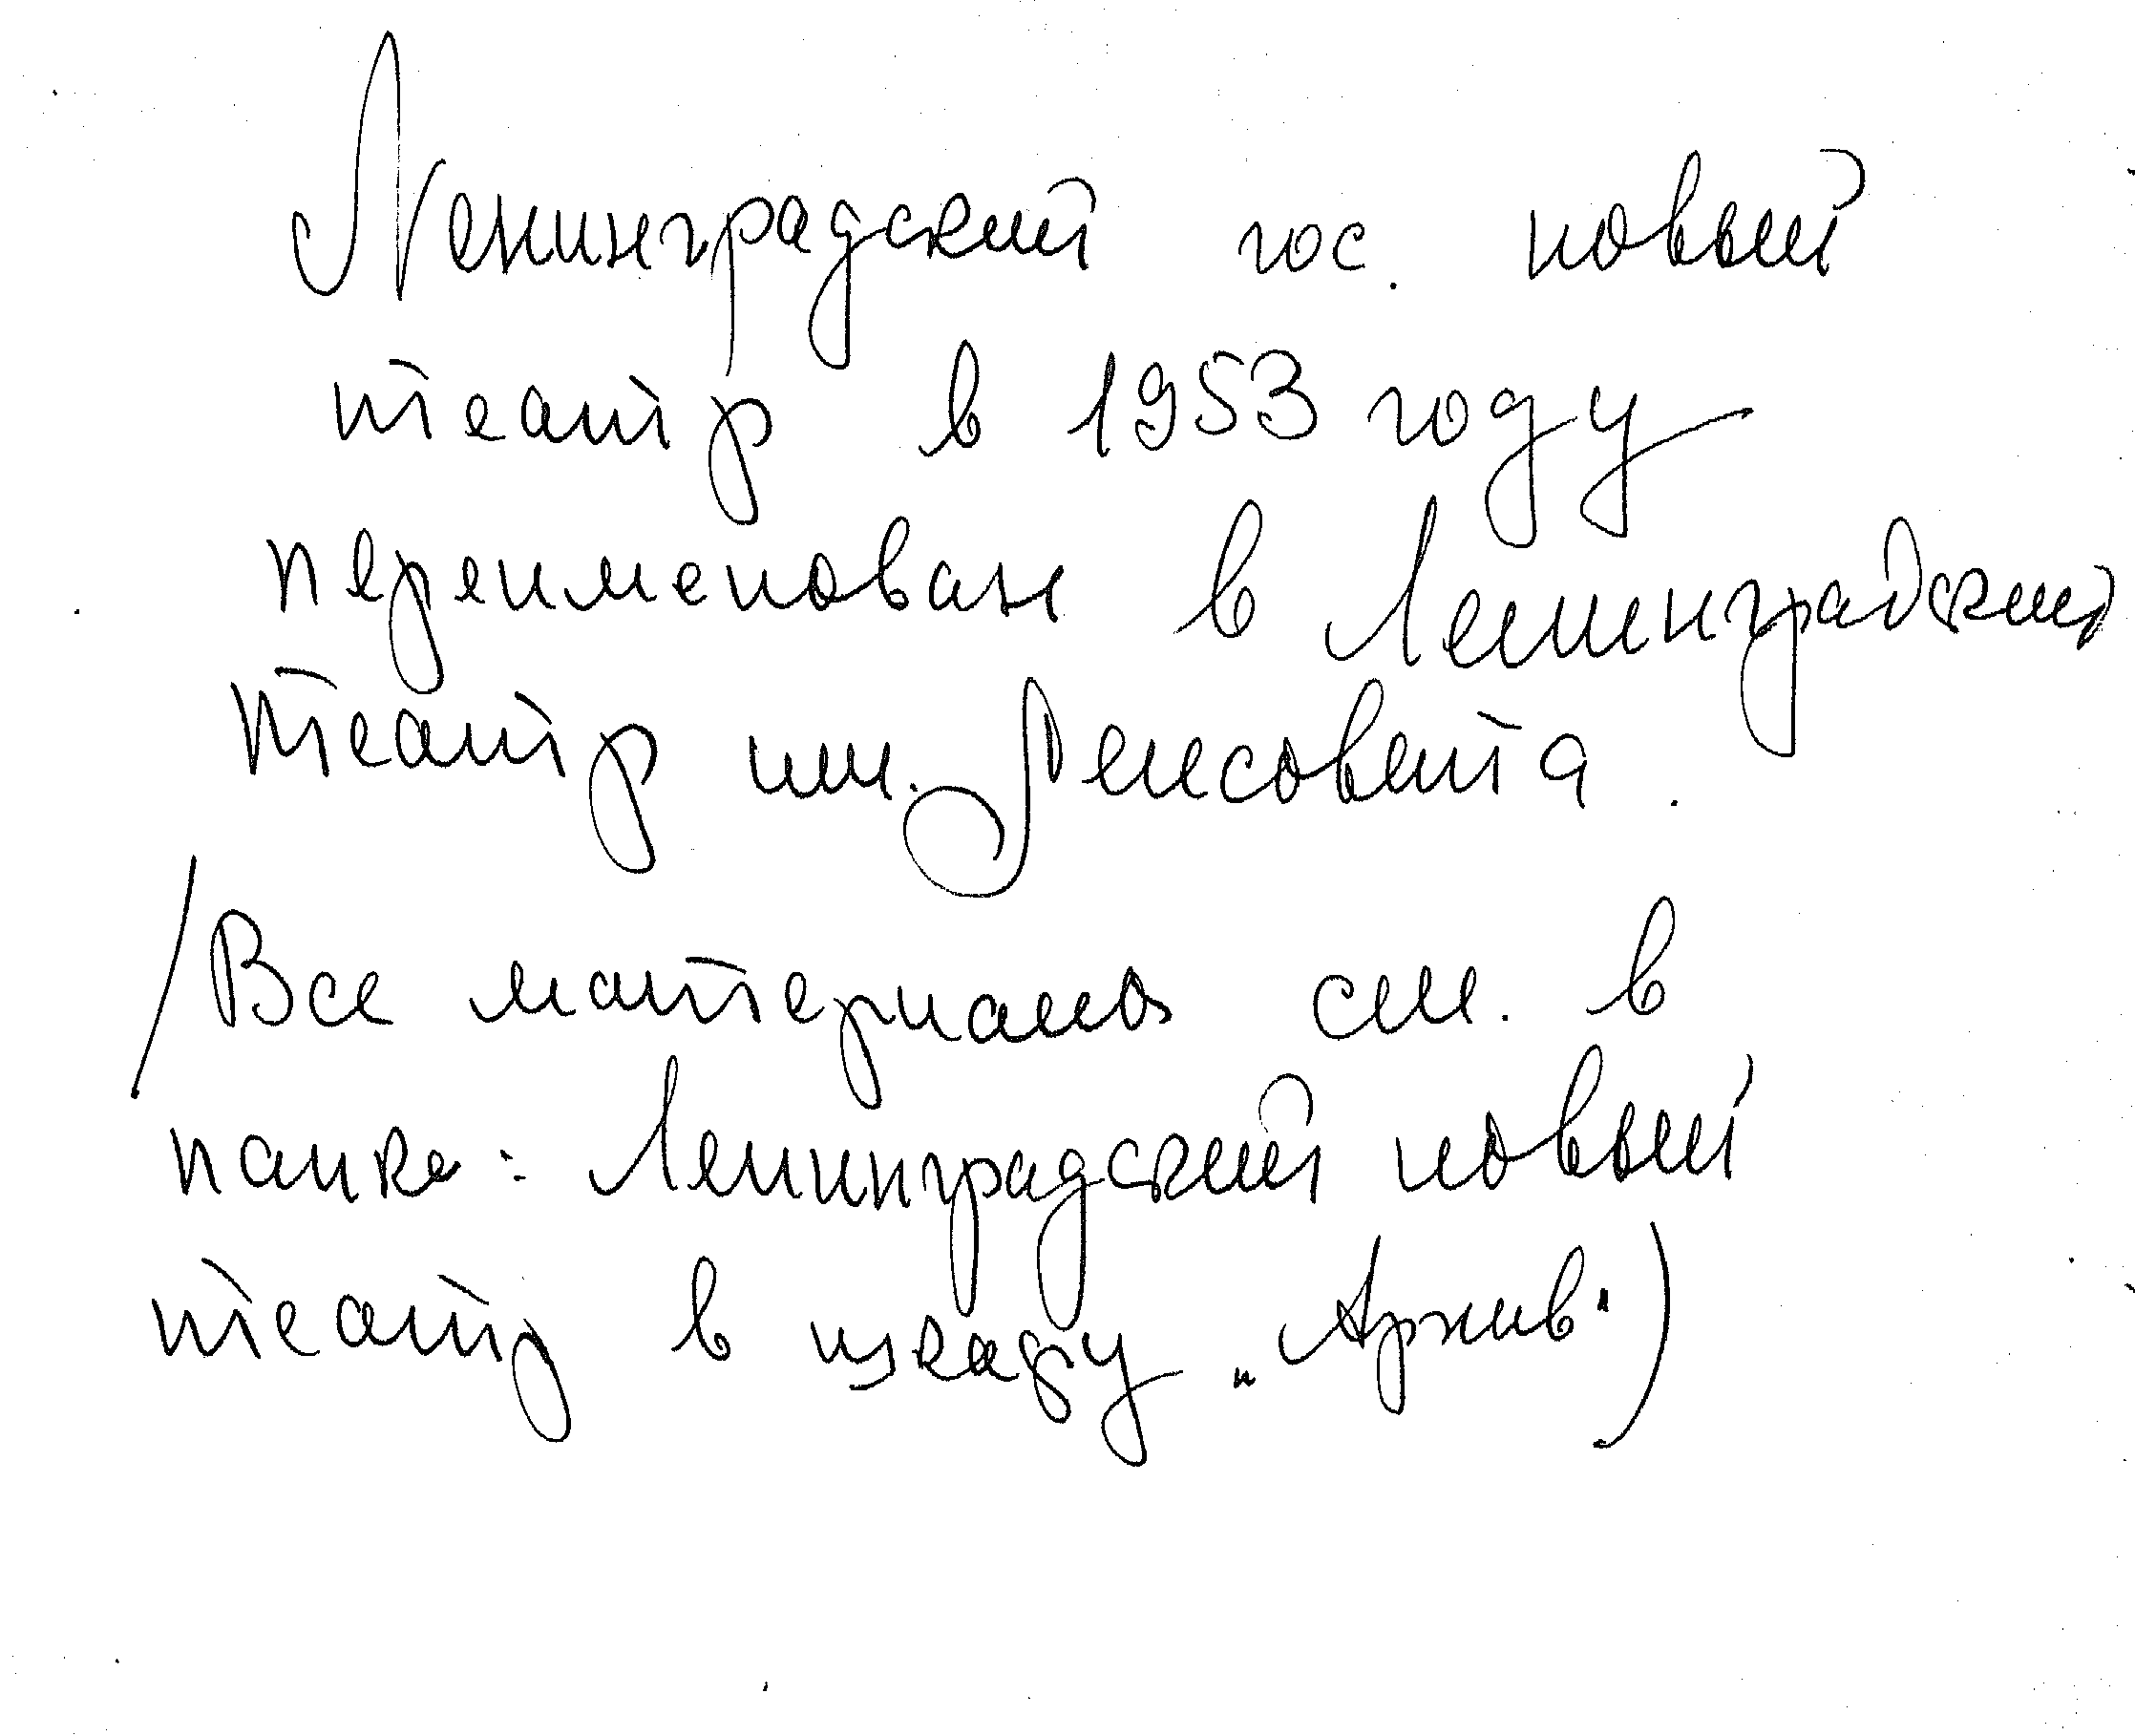 Ленинградский гос. новый
театр в 1953 году
переименован в Ленинградский
театр им. Ленсовета.
/Все материалы см. в
папке: Ленинградский новый
театр в шкафу „Архив")